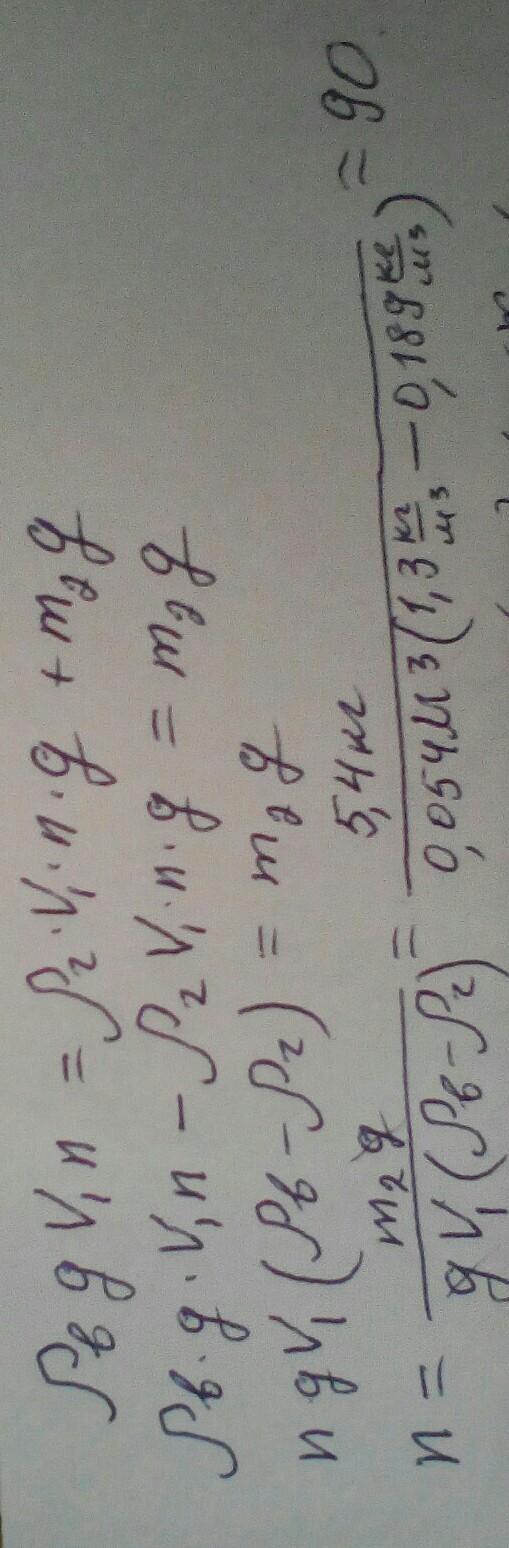 ρв g V₁ n = ρ₂ · V₁ · n · g + m₂ g
ρв · g · V₁ · n − ρ₂ V₁ · n · g = m₂ g
n g V₁ (ρв − ρ₂) = m₂ g
n = m₂ g / g V₁ (ρв − ρ₂) = 5,4 кг / 0,054 м³ (1,3 кг/м³ − 0,189 кг/м³) = 90.